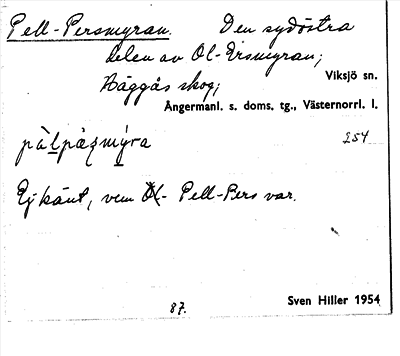 Pell-Persmyran. Den sydöstra
delen av Ol-Ersmyran;
Häggås skog; Viksjö sn.
Ångermanl. s. doms. tg., Västernorrl. l.
254
Ej känt, vem Pell-Pers var.
87. Sven Hiller 1954